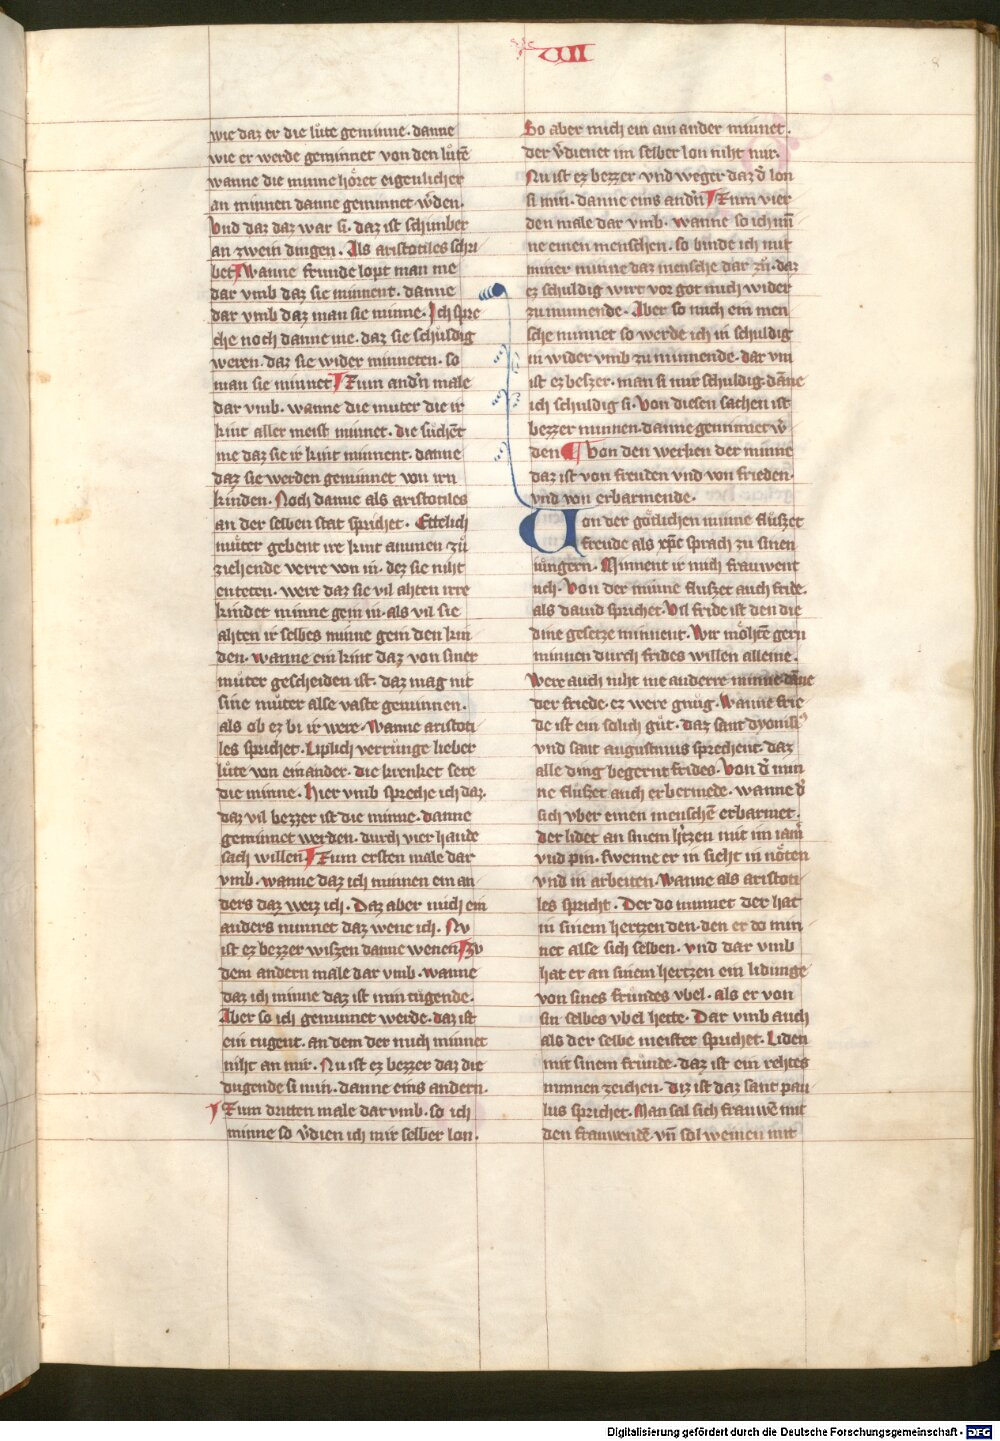 VIII
8
wie daz er die lu̍te geminne. danne
wie er werde geminnet von den lu̍tē
wanne die minne hôret eigenlicher
an minnen danne geminnet wˢden.
Vnd daz daz war si. daz ist schinber
an zwein dingen. Als aristotiles schri
bet ¶ wanne frunde lopt man me
dar vmb daz sie minnent. danne
dar vmb daz man sie minne. Ich spre
che noch danne me. daz sie schuldig
weren. daz sie wider minneten. so
man sie minnet ¶ Zum andˢn male
dar vmb. wanne die muter die ir
kint aller meist minnet. die suchēt
me daz sie ir kint minnent. danne
daz sie werden geminnet von irn
kinden. Noch danne als aristotiles
an der selben stat sprichet. Ettelich
mu̍ter gebent ire kint ammen zu̍
ziehende verre von in. dez sie niht
enteten. were daz sie vil ahten irre
kindet minne gem in. als vil sie
ahten ir selbes minne gem den kin
den. wanne ein kint daz von siner
mu̍ter gescheiden ist. daz mag nit
sine mu̍ter alse vaste geminnen.
als ob ez bi ir were. Wanne aristoti
les sprichet. Liplich verru̍nge lieber
lu̍te von einander. die krenket sere
die minne. Hier vmb spreche ich daz.
daz vil bezzer ist die minne. danne
geminnet werden. durch vier hande
sach willen ¶ Zum ersten male dar
vmb. wanne daz ich minnen ein an
ders daz weiz ich. Daz aber mich ein
anders minnet daz wene ich. Nv
ist ez bezzer wiszen danne wenen ¶ Zv
dem andern male dar vmb. wanne
daz ich minne daz ist min tu̍gende.
Aber so ich geminnet werde. daz ist
ein tugent. an dem der mich minnet
niht an mir. Nu ist ez bezzer daz die
dugende si min. danne eins andern.
¶ Zum dritten male dar vmb. so ich
minne so vˢdien ich mir selber lon.
So aber mich ein am ander minnet.
der vˢdienet im selber lon niht mir.
Nu ist ez bezzer vnd weger daz dˢ lon
si min. danne eins andˢn ¶ Zum vier
den male dar vmb. wanne so ich mī
ne einen menschen. so binde ich mit
miner minne daz mensche dar zu̍. daz
ez schuldig wirt vor got mich wider
zu minnende. Aber so mich ein men
sche minnet so werde ich in schuldig
in wider vmb zu minnende. dar vm
ist ez beszer. man si mir schuldig. dāne
ich schuldig si. Von diesen sachen ist
bezzer minnen. danne geminnet wˢ
den ¶ Von den werken der minne
daz ist von freuden vnd von frieden.
vnd von erbarmende.
Von der gôtlichen minne flu̍szet
freude als xp̄c sprach zu sinen
iu̍ngern. Minnent ir mich frauwent
uch. Von der minne fluszet auch fride.
als dauid sprichet. Vil fride ist den die
dine gesetze minnent. Wir môhtē gern
minnen durch frides willen alleine.
Were auch niht me anderre minne dāne
der friede. ez were gnu̍g. Wanne frie
de ist ein solich gu̍t. daz sant dyonisiꝰ
vnd sant augustinus sprechent. daz
alle ding begernt frides. Von dˢ min
ne flu̍szet auch erbermede. wanne dˢ
sich vber einen menschē erbarmet.
der lidet an sinem hˢtzen mit im iamˢ
vnd pin. swenne er in sieht in nôten
vnd in arbeiten. Wanne als aristoti
les spricht. Der do minnet der hat
in sinem hertzen den. den er do min
net alse sich selben. vnd dar vmb
hat er an sinem hertzen ein lidunge
von sines fru̍ndes vbel. als er von
sin selbes vbel hette. Dar vmb auch
als der selbe meister sprichet. Liden
mit sinem fru̍nde. daz ist ein rehtes
minnen zeichen. Diz ist daz sant pau
lus sprichet. Man sal sich frauwē mit
den frauwendē vn̄ sol weinen mit
Digitalisierung gefördert durch die Deutsche Forschungsgemeinschaft - DFG